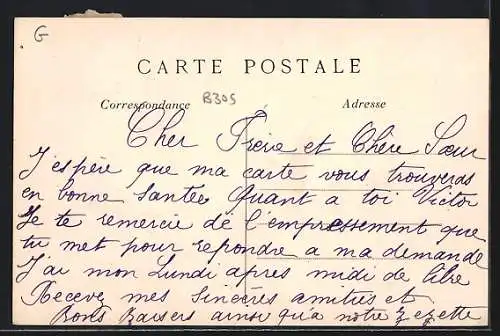 G
CARTE POSTALE
Correspondance B305 Adresse
Cher Frere et Chère Sœur
J'espère que ma carte vous trouveras
en bonne santée Quant a toi Victor
Je te remercie de l'empressement que
tu met pour repondre a ma demande
J'ai mon Lundi apres midi de libre
Recevez mes sincères amities et
Bons Baisers ainsi qu'a notre Zezette